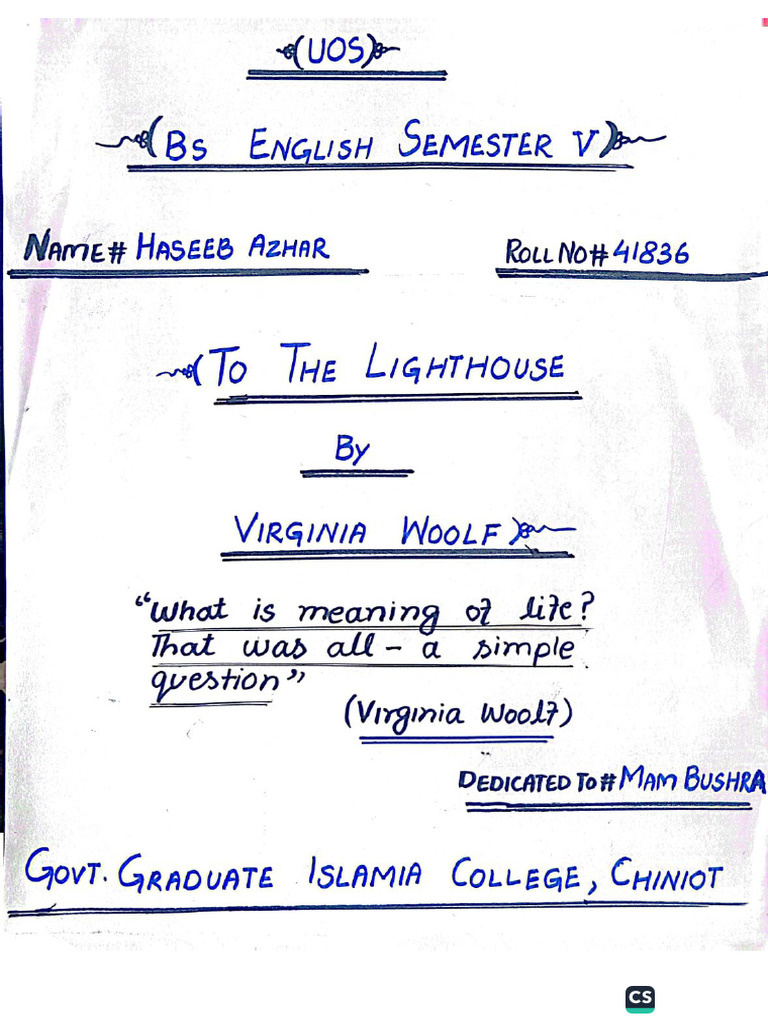 (UOS)
(BS ENGLISH SEMESTER V)
NAME# HASEEB AZHAR ROLL NO# 41836
(TO THE LIGHTHOUSE
By
VIRGINIA WOOLF)
"What is meaning of life?
That was all - a simple
question"
(Virginia Woolf)
DEDICATED TO# MAM BUSHRA
GOVT. GRADUATE ISLAMIA COLLEGE, CHINIOT
CS